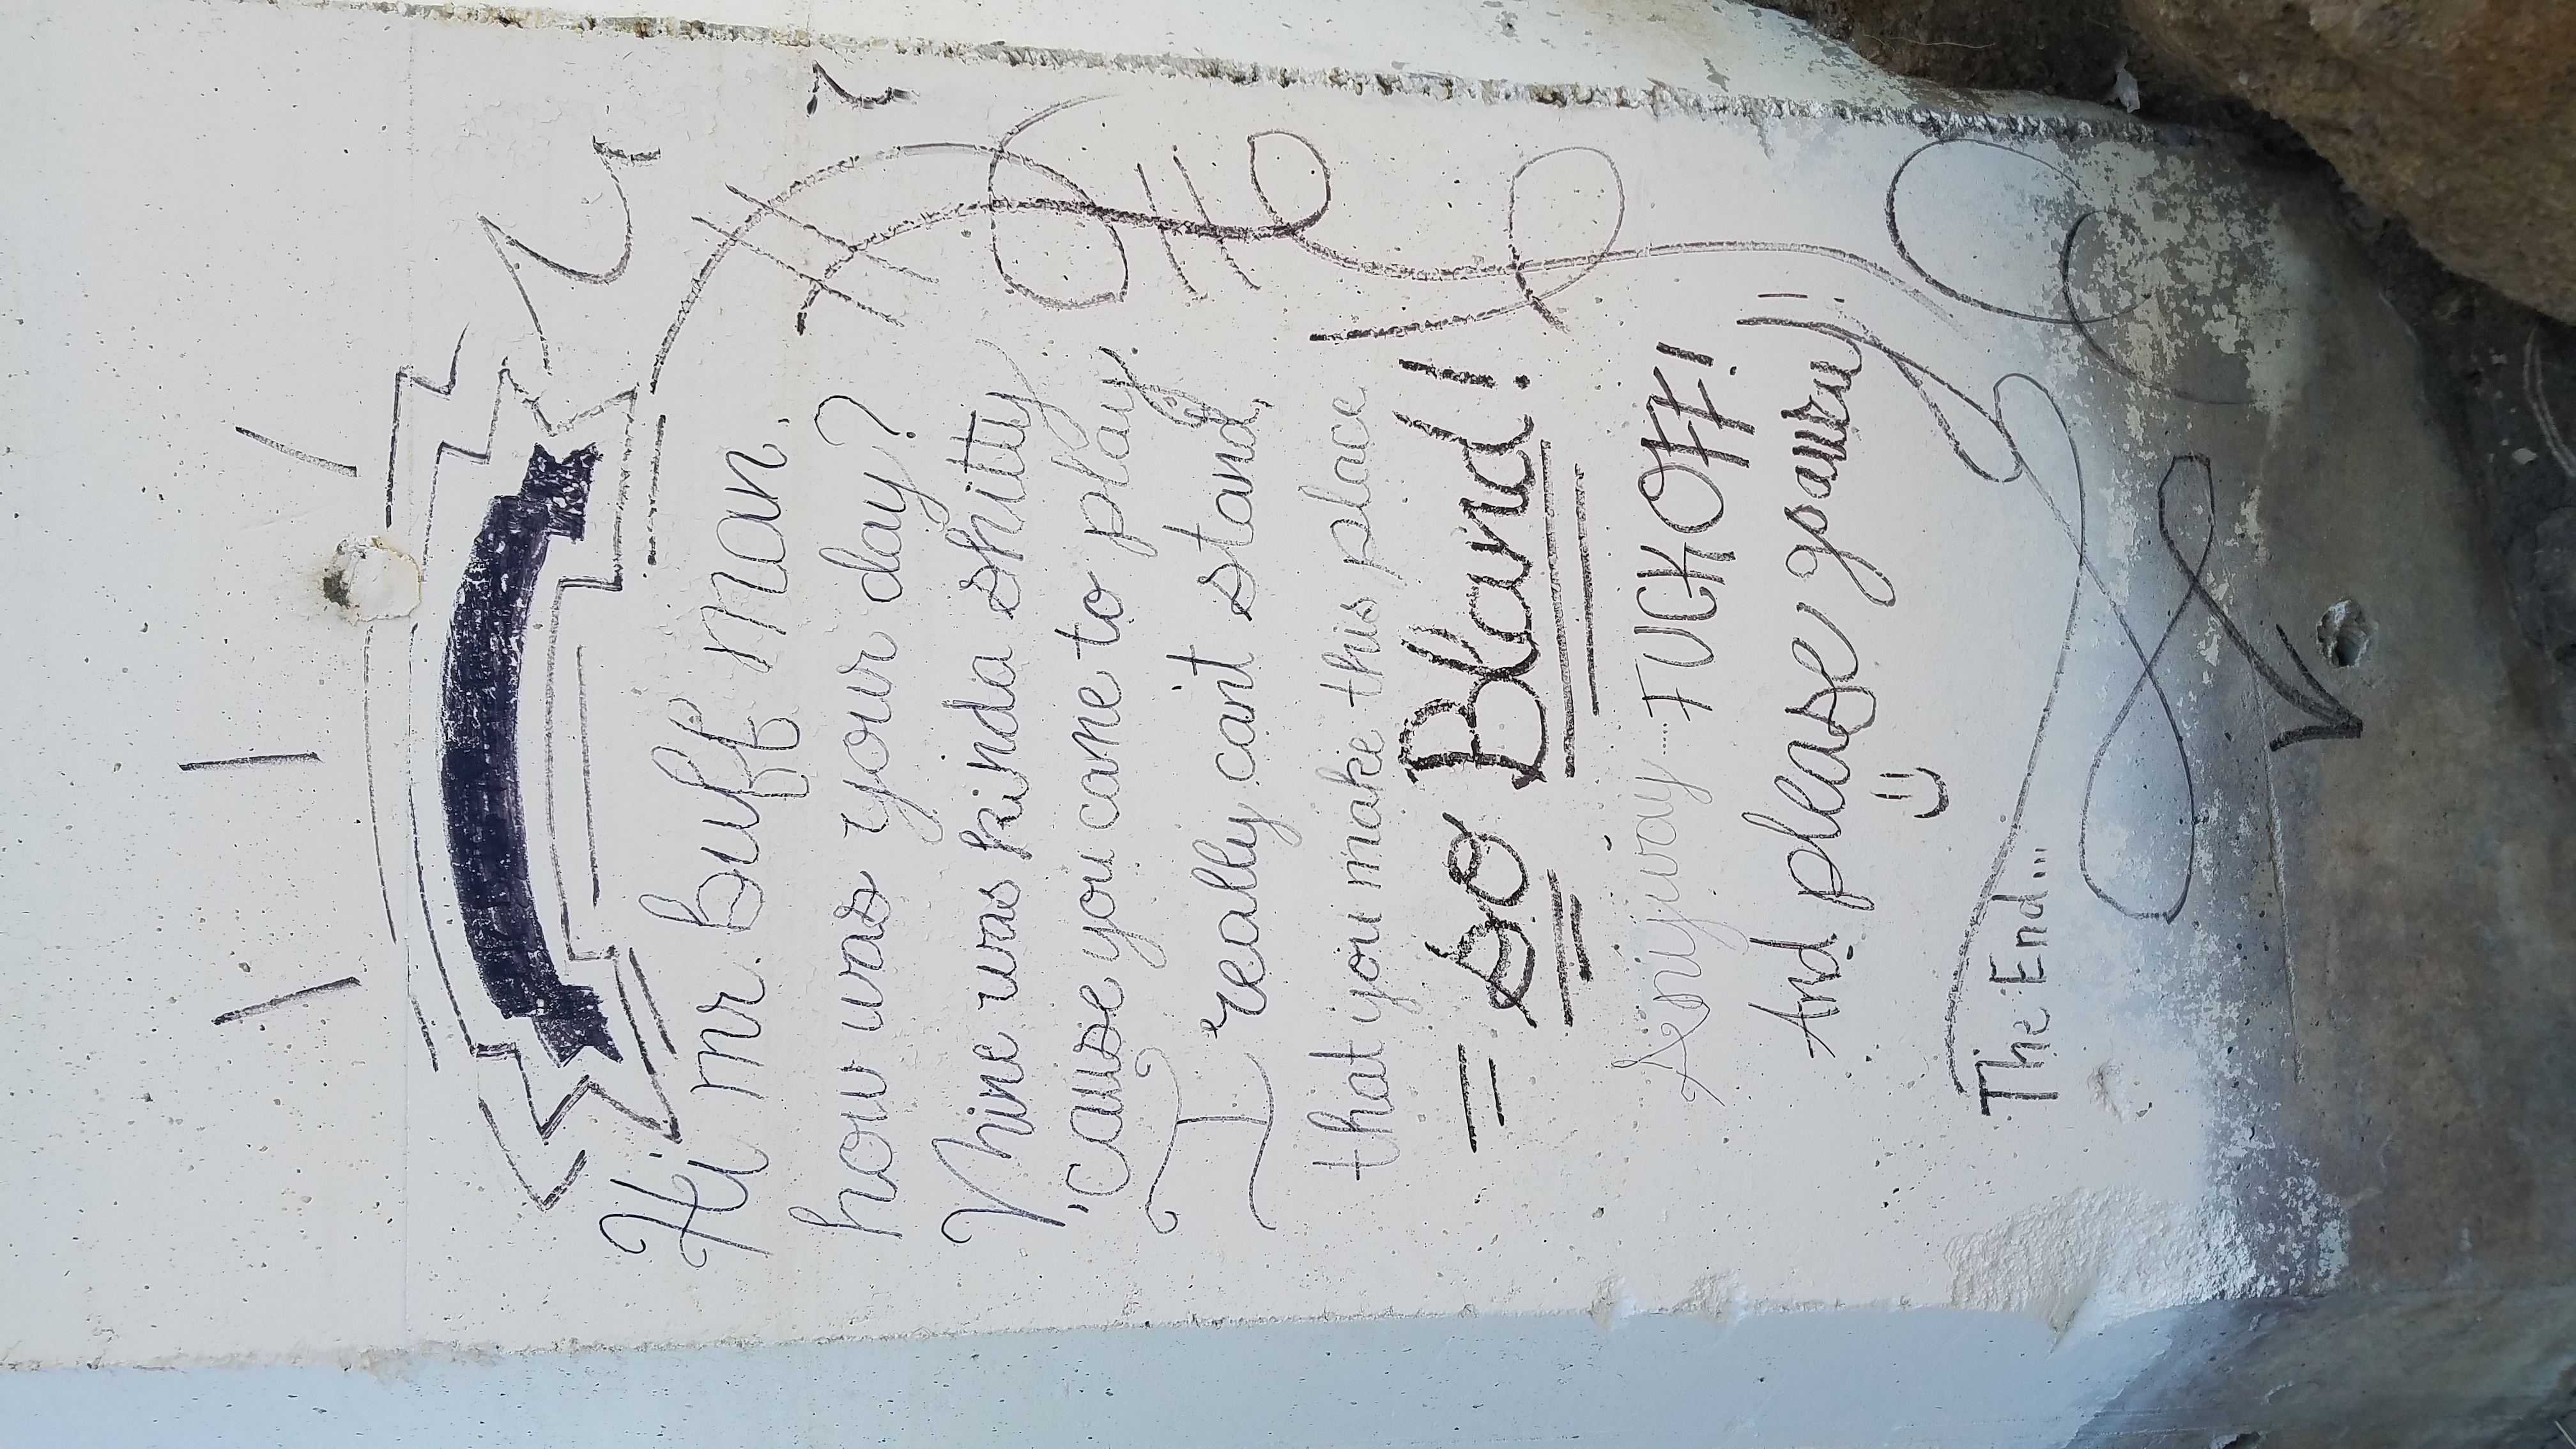 Hi mr. buff man.
how was your day?
Mine was kinda shitty
'cause you came to play.
I really can't stand,
that you make this place
= so Bland!
Anyway .... FUCK OFF!
And please
The End...